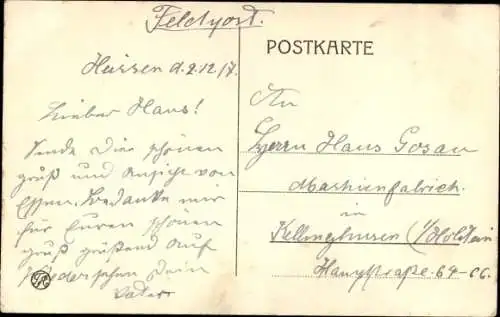 Feldpost.
POSTKARTE
Hüssen d. 2.12.17.
Lieber Hans!
Sende Dir schönen
gruß und Ansicht von
Essen. Bedanke mir
für Euren schönen
gruß grüßend auf
wiedersehen Dein
Vater
An
Herrn Hans Gosau
Maschienfabrick.
in
Kellinghusen (/Holstein
Hauptstraße 64-66.